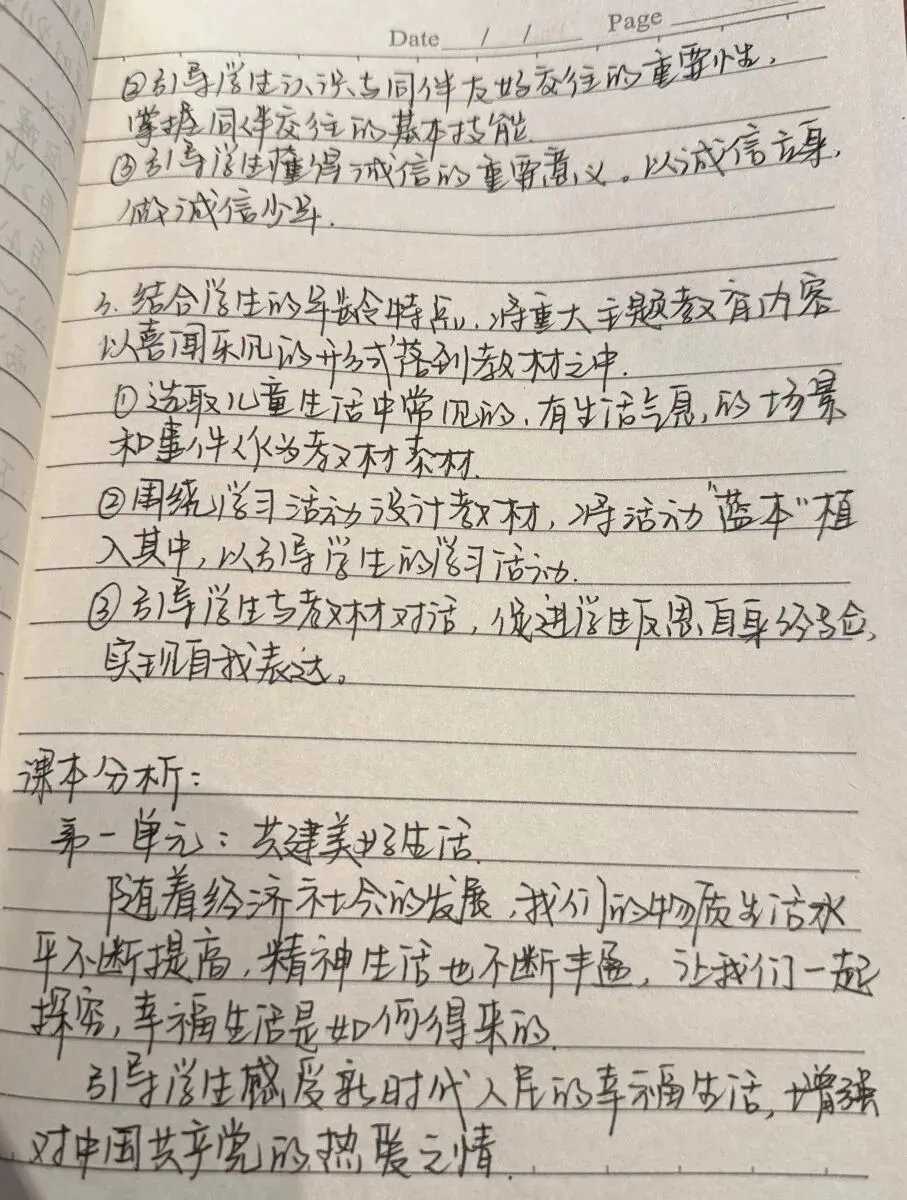 Date / / Page
②引导学生认识与同伴友好交往的重要性,
掌握同伴交往的基本技能.
③引导学生懂得诚信的重要意义。以诚信立身,
做诚信少年.
3. 结合学生的年龄特点,将重大主题教育内容
以喜闻乐见的形式落到教材之中.
①选取儿童生活中常见的,有生活气息的场景
和事件作为教材素材.
②围绕学习活动设计教材,将活动“蓝本”植
入其中,以引导学生的学习活动.
③引导学生与教材对话,促进学生反思自身经验,
实现自我表达。
课本分析:
第一单元:共建美好生活.
随着经济社会的发展,我们的物质生活水
平不断提高,精神生活也不断丰盈,让我们一起
探究,幸福生活是如何得来的.
引导学生感受新时代人民的幸福生活,增强
对中国共产党的热爱之情.